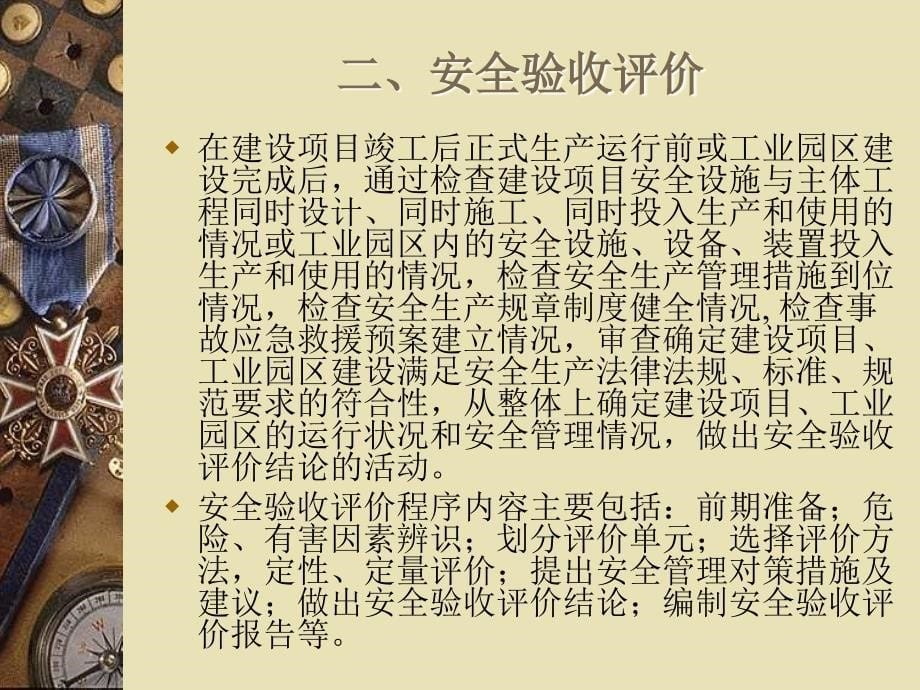 二、安全验收评价
在建设项目竣工后正式生产运行前或工业园区建
设完成后，通过检查建设项目安全设施与主体工
程同时设计、同时施工、同时投入生产和使用的
情况或工业园区内的安全设施、设备、装置投入
生产和使用的情况，检查安全生产管理措施到位
情况，检查安全生产规章制度健全情况,检查事
故应急救援预案建立情况，审查确定建设项目、
工业园区建设满足安全生产法律法规、标准、规
范要求的符合性，从整体上确定建设项目、工业
园区的运行状况和安全管理情况，做出安全验收
评价结论的活动。
安全验收评价程序内容主要包括：前期准备；危
险、有害因素辨识；划分评价单元；选择评价方
法，定性、定量评价；提出安全管理对策措施及
建议；做出安全验收评价结论；编制安全验收评
价报告等。